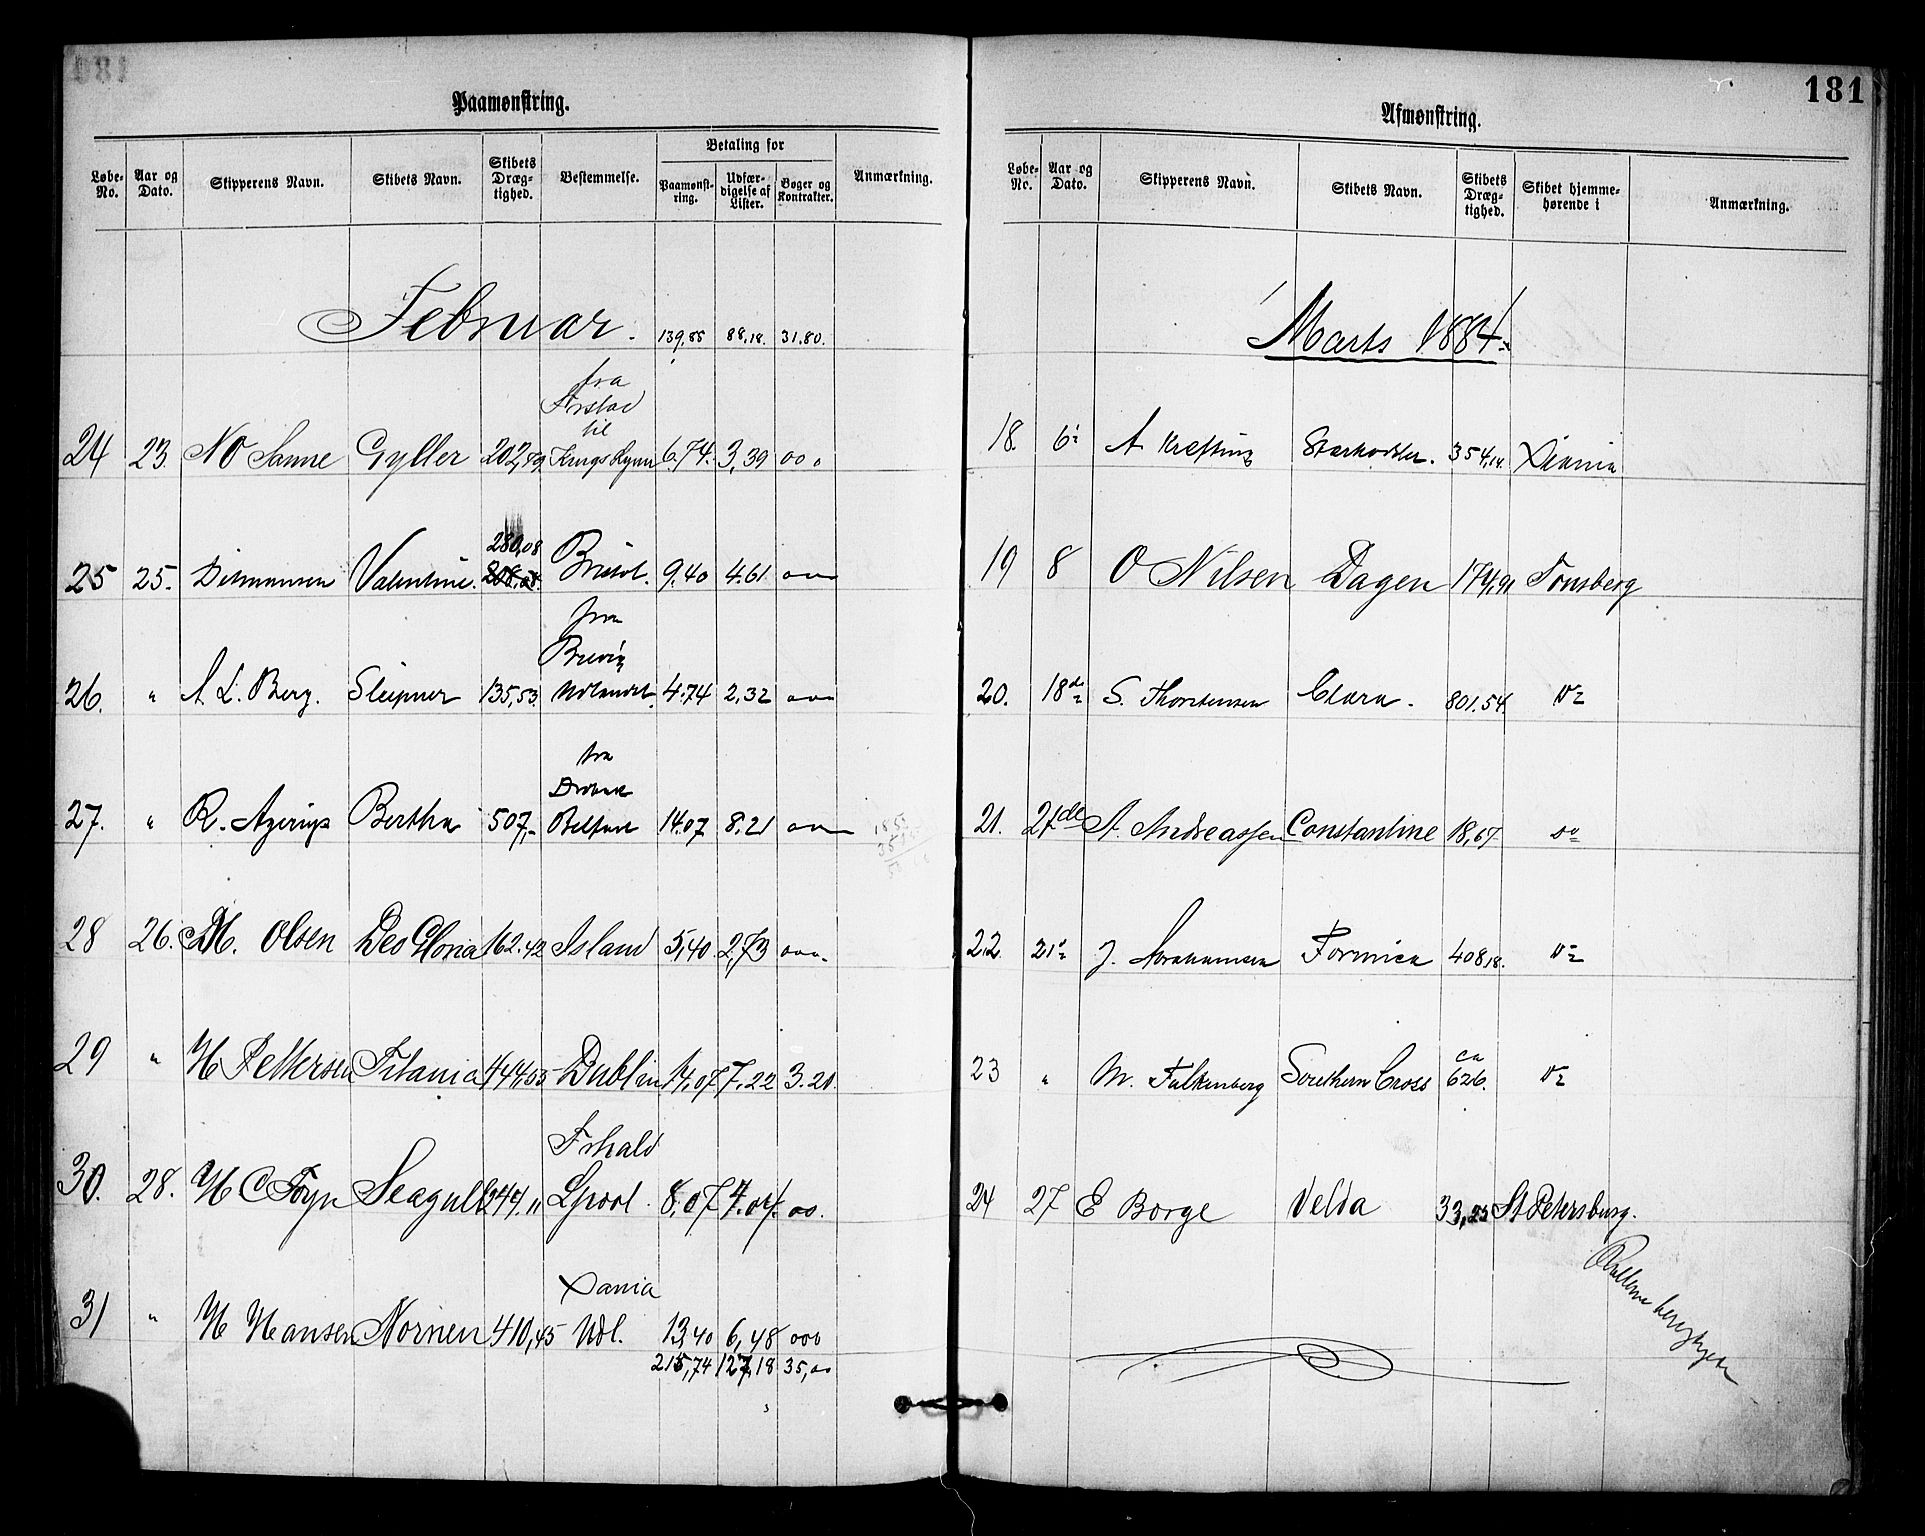 181
Paamønstring.
Løbe-No. Aar og Dato. Skipperens Navn. Skibets Navn. Skibets Dræg-tighed. Bestemmelse. Betaling for Paamønst-ring. Udfær-digelse af Lister. Bøger og Kontrakter. Anmærkning.
Februar. 139,85 88,18. 31.80.
fra
Frstad
til
24 23. N O Sanne Gyller 202,89 Kings Lynn 6.74. 3,39 ooo
280,08
25 25. Ditmansen Valentine. 208,08. Bristol. 9,40 4.61 ooo
fra
Brevig
26. " A L. Berg. Sleipner 135,53. Udlandet. 4.74 2,32 ooo
fra
Drobak
27. " R. Agerup Bertha 507,- Belfast 14.07 8,21 ooo
28 26. M. Olsen Deo Gloria 162.42 Island 5,40 2,73 ooo.
29 " H Pettersen Titania 444,05 Dublin 14,07 7.22 3.20
Frhald
30. 28. H C Foyn Seagull 244,11 Lpool. 8,07 4.04. oo.
Xania
31 " H Hansen Nornen 410,45 Udl. 13,40 6,48 ooo
215,74 127,18 35,00
Afmønstring.
181
Løbe-No. Aar og Dato. Skipperens Navn. Skibets Navn. Skibets Dræg-tighed. Skibet hjemme-hørende i Anmærkning.
Marts 1884.
18. 6 A Kræfting Starkodder. 354,14. Xiania
19 8 O Nilsen Dagen 174,91 Tønsberg
20. 18de S. Thorstensen Clara. 801.54. Do
21. 21de A. Andreassen Constantine 18,67 do
22 21 J. Abrahamsen Formica 408,18. Do
ca
23 " M. Falkenberg Southern Cross 626. Do
24 27 E Borge Velda 33,25 St Petersburg.